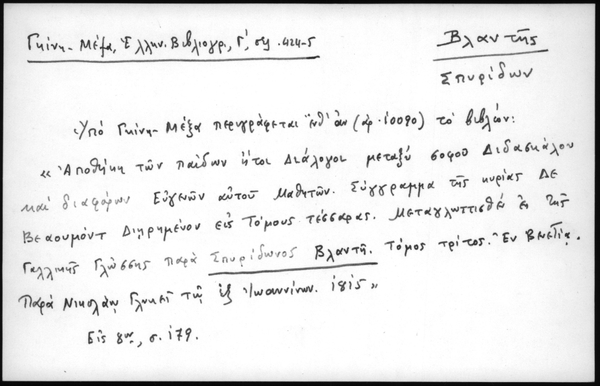 Γκίνη - Μέξα, Ἑλλην. Βιβλιογρ., Γ', σ. 424-5
Βλαντῆς
Σπυρίδων
Ὑπό Γκίνη - Μέξα περιγράφεται (ἀρ. 10090) τό βιβλίον:
« Ἀποθήκη τῶν παίδων ἤτοι Διάλογοι μεταξύ σοφοῦ Διδασκάλου
καί διαφόρων Εὐγενῶν αὐτοῦ Μαθητῶν. Σύγγραμμα τῆς κυρίας Δε
Βεαουμόντ Διῃρημένον εἰς Τόμους τέσσαρας. Μεταγλωττισθέν ἐκ τῆς
Γαλλικῆς Γλώσσης παρά Σπυρίδωνος Βλαντῆ. Τόμος τρίτος. Ἐν Βενετίᾳ.
Παρά Νικολάῳ Γλυκεῖ τῷ ἐξ Ἰωαννίνων. 1815 »
Εἰς 8ον, σ. 179.